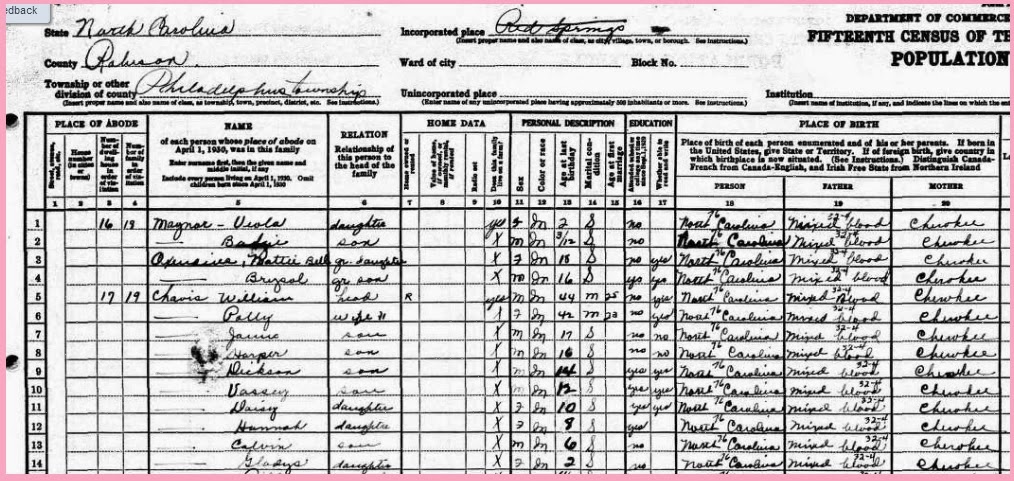 edback
State North Carolina
Incorporated place Red Springs
(Insert proper name and also name of class, as city, village, town, or borough. See instructions.)
DEPARTMENT OF COMMERCE
County Robeson
Ward of city
Block No.
FIFTEENTH CENSUS OF TH
POPULATION
Township or other division of county Philadelphus township
(Insert proper name and also name of class, as township, town, precinct, district, etc. See instructions.)
Unincorporated place
(Enter name of any unincorporated place having approximately 500 inhabitants or more. See instructions.)
Institution
(Insert name of institution, if any, and indicate the lines on which the en
PLACE OF ABODE NAME RELATION HOME DATA PERSONAL DESCRIPTION EDUCATION PLACE OF BIRTH
of each person whose place of abode on April 1, 1930, was in this family
Enter surname first, then the given name and middle initial, if any
Include every person living on April 1, 1930. Omit children born since April 1, 1930
Relationship of this person to the head of the family
Place of birth of each person enumerated and of his or her parents. If born in the United States, give State or Territory. If of foreign birth, give country in which birthplace is now situated. (See Instructions.) Distinguish Canada-French from Canada-English, and Irish Free State from Northern Ireland
PERSON FATHER MOTHER
1 2 3 4 5 6 7 8 9 10 11 12 13 14 15 16 17 18 19 20
1 16 19 Maynor Viola daughter yes F In 2 S no North Carolina 76 Mixed blood 32-4 Cherokee
2 son X M In 3/12 S no North Carolina 76 Mixed blood 32-4 Cherokee
3 Mattie Bell gr. daughter X F In 18 S no yes North Carolina 76 Mixed blood 32-4 Cherokee
4 gr son X M In 16 S yes yes North Carolina 76 mixed blood 32-4 Cherokee
5 17 19 Chavis William head R yes M In 44 M 25 no yes North Carolina 76 mixed Blood 32-4 Cherokee
6 Polly wife H X F In 42 M 23 no yes North Carolina 76 mixed blood 32-4 Cherokee
7 son X M In 17 S no no North Carolina 76 mixed blood 32-4 Cherokee
8 Harper son X M In 16 S no no North Carolina 76 mixed blood 32-4 Cherokee
9 Dickson son X M In 14 S yes yes North Carolina 76 mixed blood 32-4 Cherokee
10 Vassey son X M In 12 S yes yes North Carolina 76 mixed blood 32-4 Cherokee
11 Daisy daughter X F In 10 S yes yes North Carolina 76 mixed blood 32-4 Cherokee
12 Hannah daughter X F In 8 S yes North Carolina 76 mixed blood 32-4 Cherokee
13 Calvin son X M In 6 S no North Carolina 76 mixed blood 32-4 Cherokee
14 Gladys daughter X F In 2 S no North Carolina 76 mixed blood 32-4 Cherokee